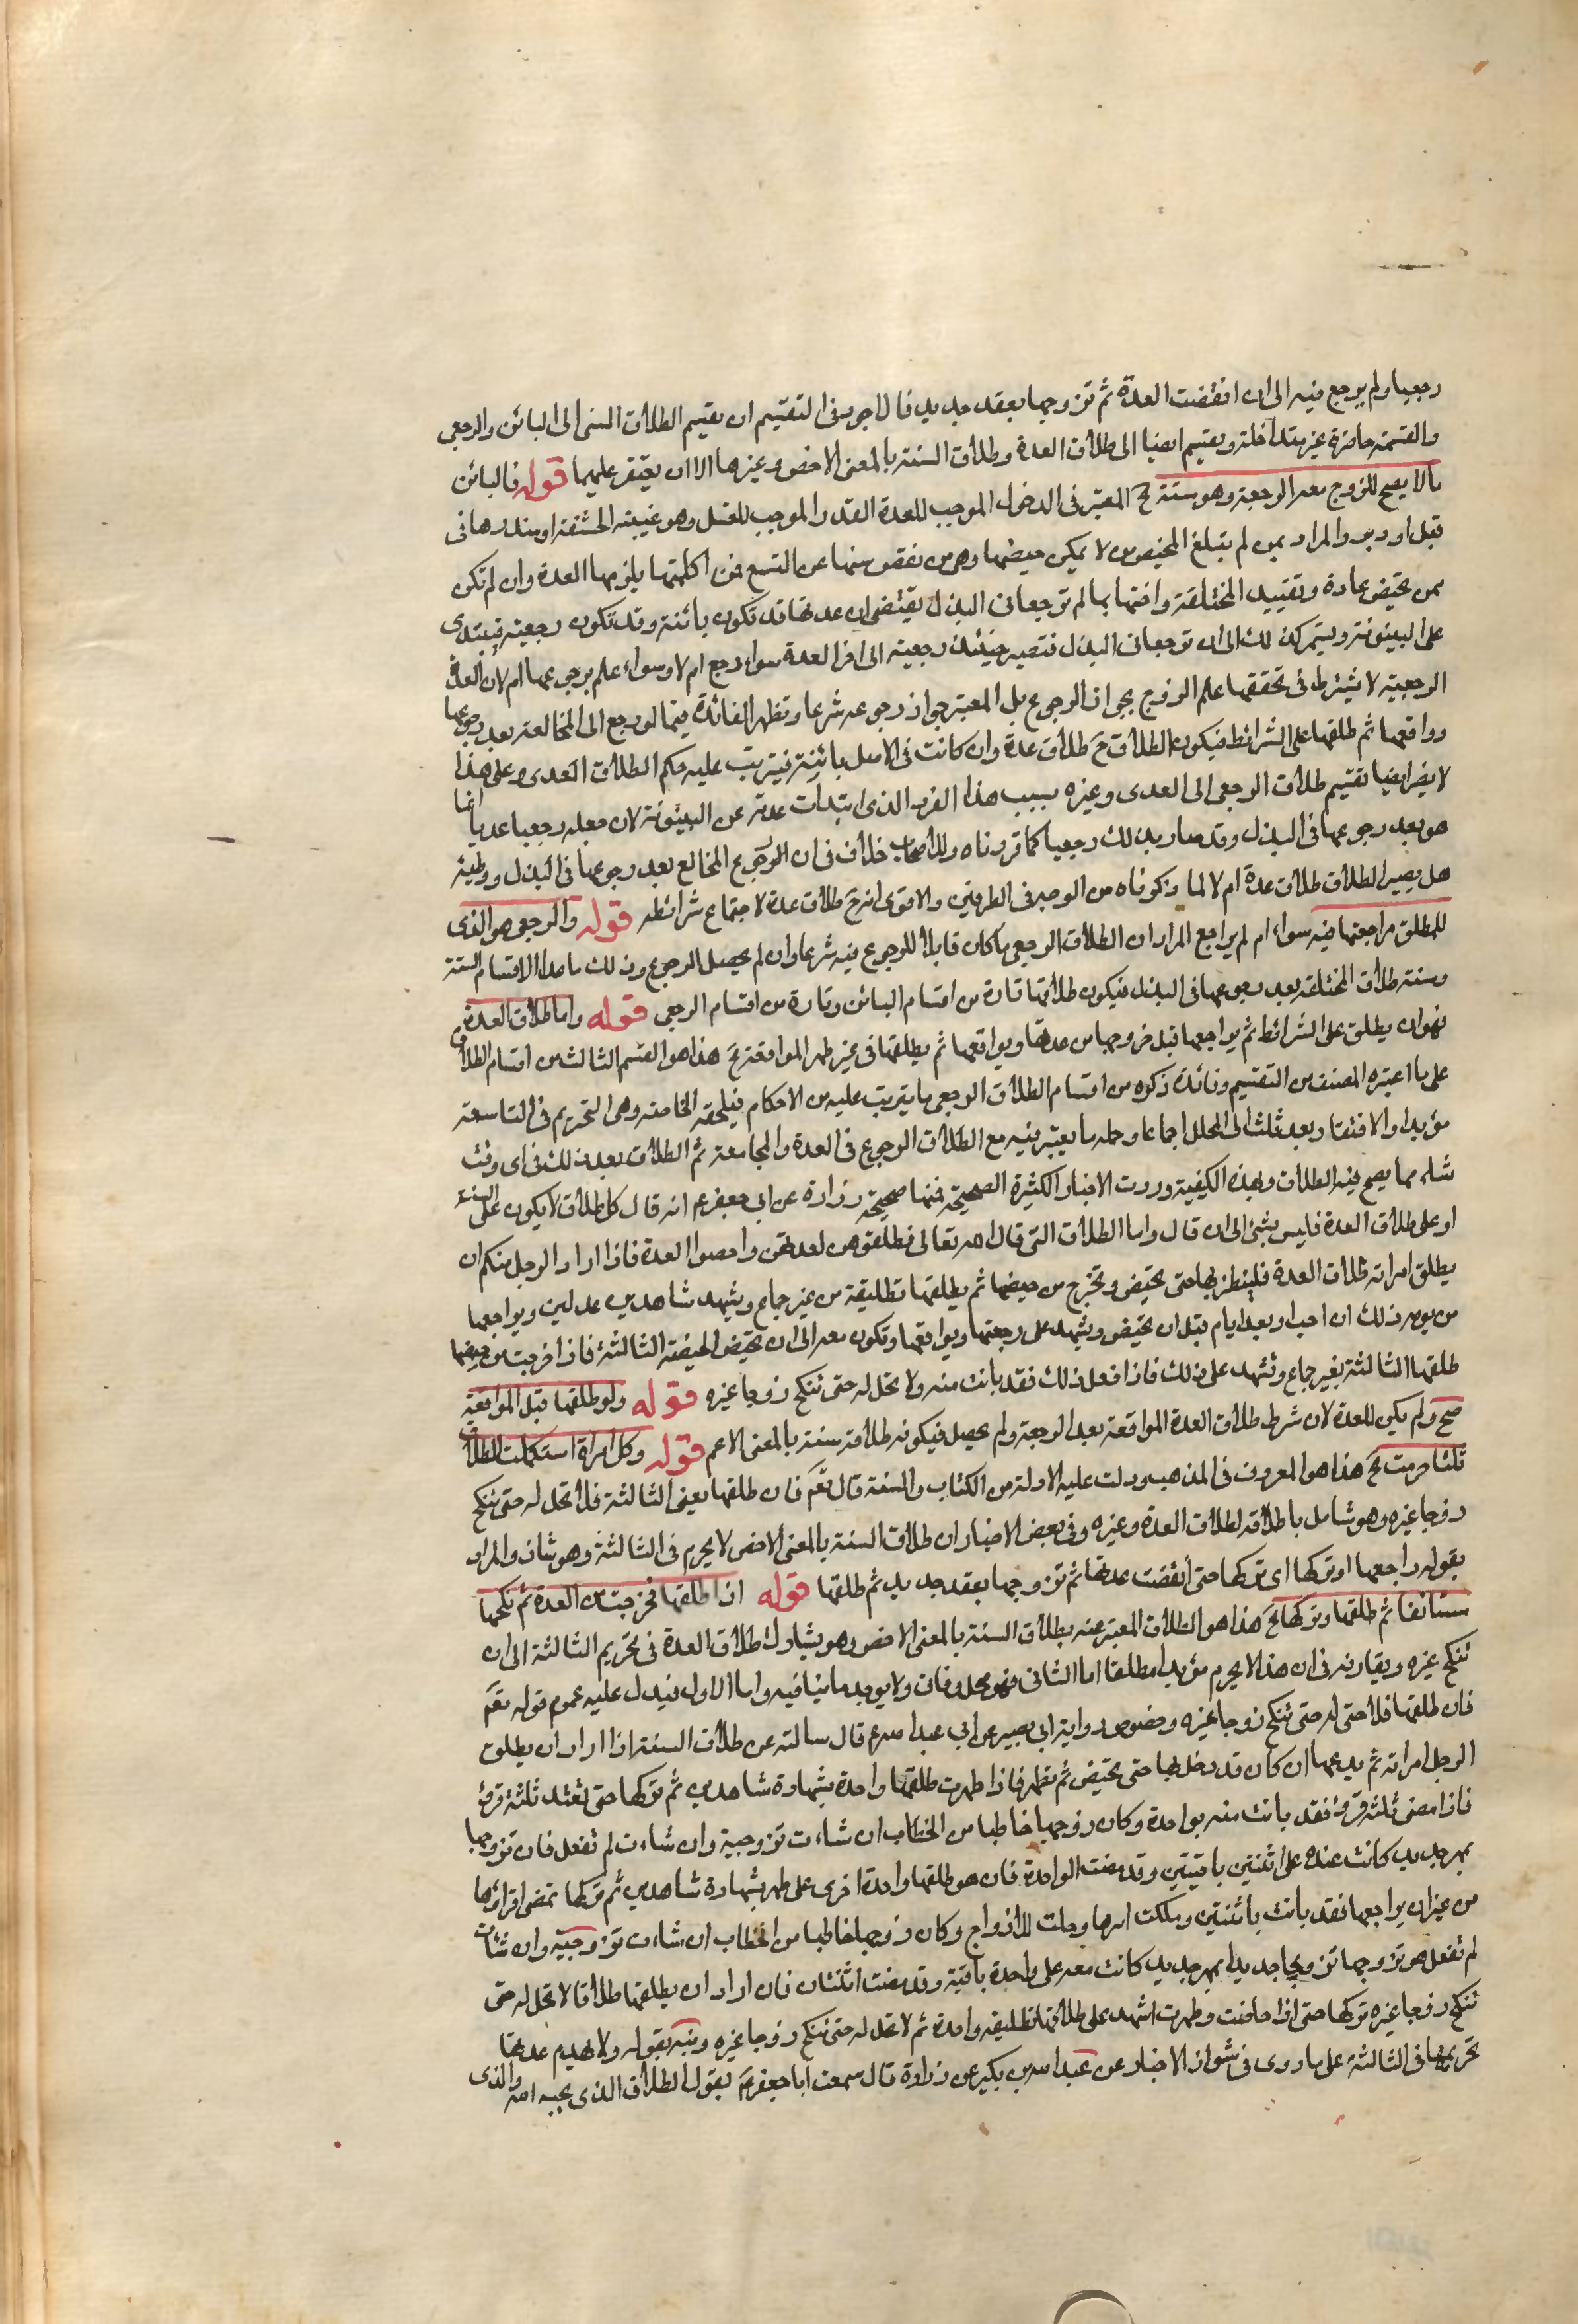 رجعيا ولم يرجع فيه الى ان انقضت العدة ثم تزوجها بعقد جديد فالاجود في التقسيم ان يقسم الطلاق السني الى البائن والرجعي
والقسمة حاضرة غير متداخلة ويقسم ايضا الى طلاق العدة وطلاق السنة بالمعنى الاخص وغيرهما الا ان يفتقر عليهما قوله فالبائن
ما لا يصح للزوج معه الرجعة وهو ستة الخ المعتبر في الدخول الموجب للعدة القدر الموجب للغسل وهو غيبة الحشفة او قدرها في
قبل او دبر والمراد بمن لم يبلغ المحيض من لا يمكن حيضها وهى من نقص سنها عن التسع فمن اكملتها يلزمها العدة وان لم تكن
ممن تحيض عادة وتقييد المختلعة واختها بما لم ترجعا في البذل يقتضى ان عدتها قد تكون بائنة وقد تكون رجعية فيبتدى
على البينونة ويستمر كذلك الى ان ترجعا في البذل فتصير حينئذ رجعية الى اخر العدة سواء رجع ام لا وسواء علم برجوعها ام لا لان العدة
الرجعية لا يشترط في تحققها علم الزوج بجواز الرجوع بل المعتبر جواز رجوعه شرعا وتظهر الفائدة فيما لو رجع الى المخالعة بعد رجوعها
وواقعها ثم طلقها على الشرائط فيكون الطلاق ح طلاق عدة وان كانت في الاصل بائنة فيترتب عليه حكم الطلاق العدى وعلى هذا
لا يضر ايضا تقسيم طلاق الرجعي الى العدى وغيره بسبب هذا الفرد الذى ابتدات عدته عن البينونة لان جعله رجعيا عديا انما
هو بعد رجوعها في البذل وقد صار بذلك رجعيا كما قررناه وللاصحاب خلاف في ان الرجوع المخالع بعد رجوعها في البذل ووطيه
هل يصير الطلاق طلاق عدة ام لا لما ذكرناه من الوجه في الطرفين والاقوى انه ح طلاق عدة لاجتماع شرائطه قوله والرجعى هو الذى
للمطلق مراجعتها فيه سواء ام لم يراجع المراد ان الطلاق الرجعى ما كان قابلا للرجوع فيه شرعا وان لم يحصل الرجوع وذلك ما عدا الاقسام الستة
ومنه طلاق المختلعة بعد رجوعها في البذل فيكون طلاقها تارة من اقسام البائن وتارة من اقسام الرجعى قوله واما طلاق العدة
فهو ان يطلق على الشرائط ثم يراجعها قبل خروجها من عدتها ويواقعها ثم يطلقها في غير طهر المواقعة الخ هذا هو القسم الثالث من اقسام الطلاق
على ما اعتبره المصنف من التقسيم وفائدة ذكره من اقسام الطلاق الرجعى ما يترتب عليه من الاحكام فيلحقه الخاصة وهى التحريم في التاسعة
مؤبدا والافتقار بعد ثلث الى المحلل اجماعا وحله ما يعتبر فيه مع الطلاق الرجوع في العدة والمجامعة ثم الطلاق بعد ذلك في اى وقت
شاء مما يصح فيه الطلاق وبهذه الكيفية وردت الاخبار الكثيرة الصحيحة فمنها صحيحة زرارة عن ابى جعفر ع انه قال كل طلاق لا يكون على السنة
او على طلاق العدة فليس بشئ الى ان قال واما الطلاق التى قال الله تعالى فطلقوهن لعدتهن واحصوا العدة فاذا اراد الرجل منكم ان
يطلق امراته طلاق العدة فلينظر بها حتى تحيض وتخرج من حيضها ثم يطلقها تطليقة من غير جماع ويشهد شاهدين عدلين ويراجعها
من يومه ذلك ان احب او بعد ايام قبل ان تحيض ويشهد على رجعتها ويواقعها وتكون معه الى ان تحيض الحيضة الثالثة فاذا خرجت من حيضها
طلقها الثالثة بغير جماع وتشهد على ذلك فاذا فعل ذلك فقد بانت منه ولا تحل له حتى تنكح زوجا غيره قوله ولو طلقها قبل المواقعة
صح ولم يكن للعدة لان شرط طلاق العدة المواقعة بعد الرجعة ولم يحصل فيكونه طلاقة سنة بالمعنى الاعم قوله وكل امراة استكملت الطلاق
ثلثا حرمت الخ هذا هو المعروف في المذهب ودلت عليه الادلة من الكتاب والسنة قال تعم فان طلقها يعنى الثالثة فلا تحل له حتى تنكح
زوجا غيره وهو شامل باطلاقه لطلاق العدة وغيره وفى بعض الاخبار ان طلاق السنة بالمعنى الاخص لا يحرم في الثالثة وهو شاذ والمراد
بقوله راجعها او تركها اى تركها حتى انقضت عدتها ثم تزوجها بعقد جديد ثم طلقها قوله اذا طلقها فخرجت من العدة ثم نكحها
مستانفا ثم طلقها وتركها الخ هذا هو الطلاق المعبر عنه بطلاق السنة بالمعنى الاخص وهو يشارك طلاق العدة في تحريم الثالثة الى ان
تنكح غيره ويقارنه في ان هذا لا يحرم مؤبدا مطلقا اما الثانى فهو محل وفاق ولا يوجد ما ينافيه واما الاول فيدل عليه عموم قوله تعم
فان طلقها فلا حتى له حتى تنكح زوجا غيره وخصوص رواية ابى بصير عن ابى عبد الله ع قال سالته عن طلاق السنة اذا اراد ان يطلق
الرجل امراته ثم يدعها ان كان قد دخل بها حتى تحيض ثم تطهر فاذا طهرت طلقها واحدة بشهادة شاهدين ثم تركها حتى تعتد ثلثة قروء
فاذا مضى ثلثة قروء فقد بانت منه بواحدة وكان زوجها خاطبا من الخطاب ان شاءت تزوجته وان شاءت لم تفعل فان تزوجها
بمهر جديد كانت عنده على اثنتين باقيتين وقد مضت الواحدة فان هو طلقها واحدة اخرى على طهر بشهادة شاهدين ثم تركها تمضى اقراؤها
من غير ان يراجعها فقد بانت باثنتين وملكت امرها وحلت للازواج وكان زوجها خاطبا من الخطاب ان شاءت تزوجته وان شاءت
لم تفعل هو تزوجها تزويجا جديدا بمهر جديد كانت معه على واحدة باقية وقد مضت اثنتان فان اراد ان يطلقها طلاقا لا تحل له حتى
تنكح زوجا غيره تركها حتى اذا حاضت وطهرت اشهد على طلاقها تطليقة واحدة ثم لا تحل له حتى تنكح زوجا غيره ونبه بقوله ولا تهدم عدتها
تحريمها في الثالثة على ما روى في شواذ الاخبار عن عبد الله بن بكير عن زرارة قال سمعت ابا جعفر ع يقول الطلاق الذى يحبه الله والذى